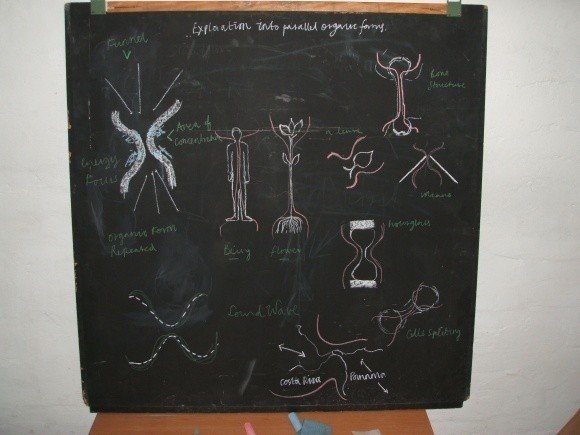 Exploration into parallel organic forms.
Funnel
Bone
Structure
Area of
Concentrated
Energy
Forces
a lense
Volcano
Organic Form
Repeated
Being
flower
hourglass
Sound Wave
Cells Splitting
Costa Rica
Panama